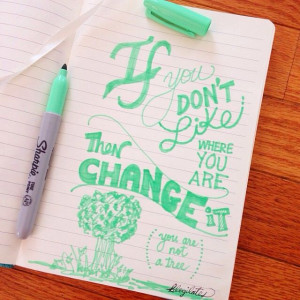 If
you
DON'T
Like
WHERE
YOU
ARE
Then
CHANGE it
you are
not
a tree
Sharpie